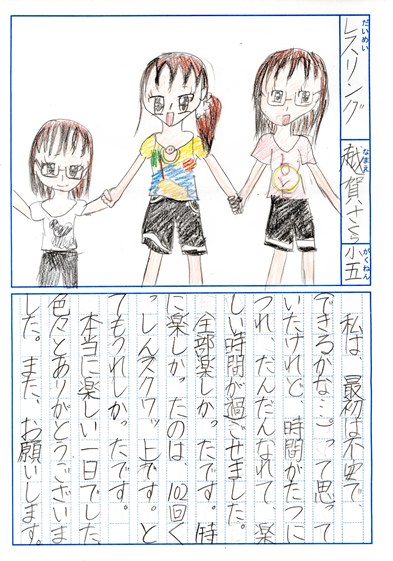 だいめい
レスリング
なまえ
越賀さくら
がくねん
小五
私は、最初は不安で、
「できるかな…。」って思って
いたけれど、時間がたつに
つれ、だんだんなれて、楽
しい時間が過ごせました。
全部楽しかったです。特
に楽しかったのは、102回く
っしんスクワットです。と
てもうれしかったです。
本当に楽しい一日でした。
色々とありがとうございま
した。また、お願いします。